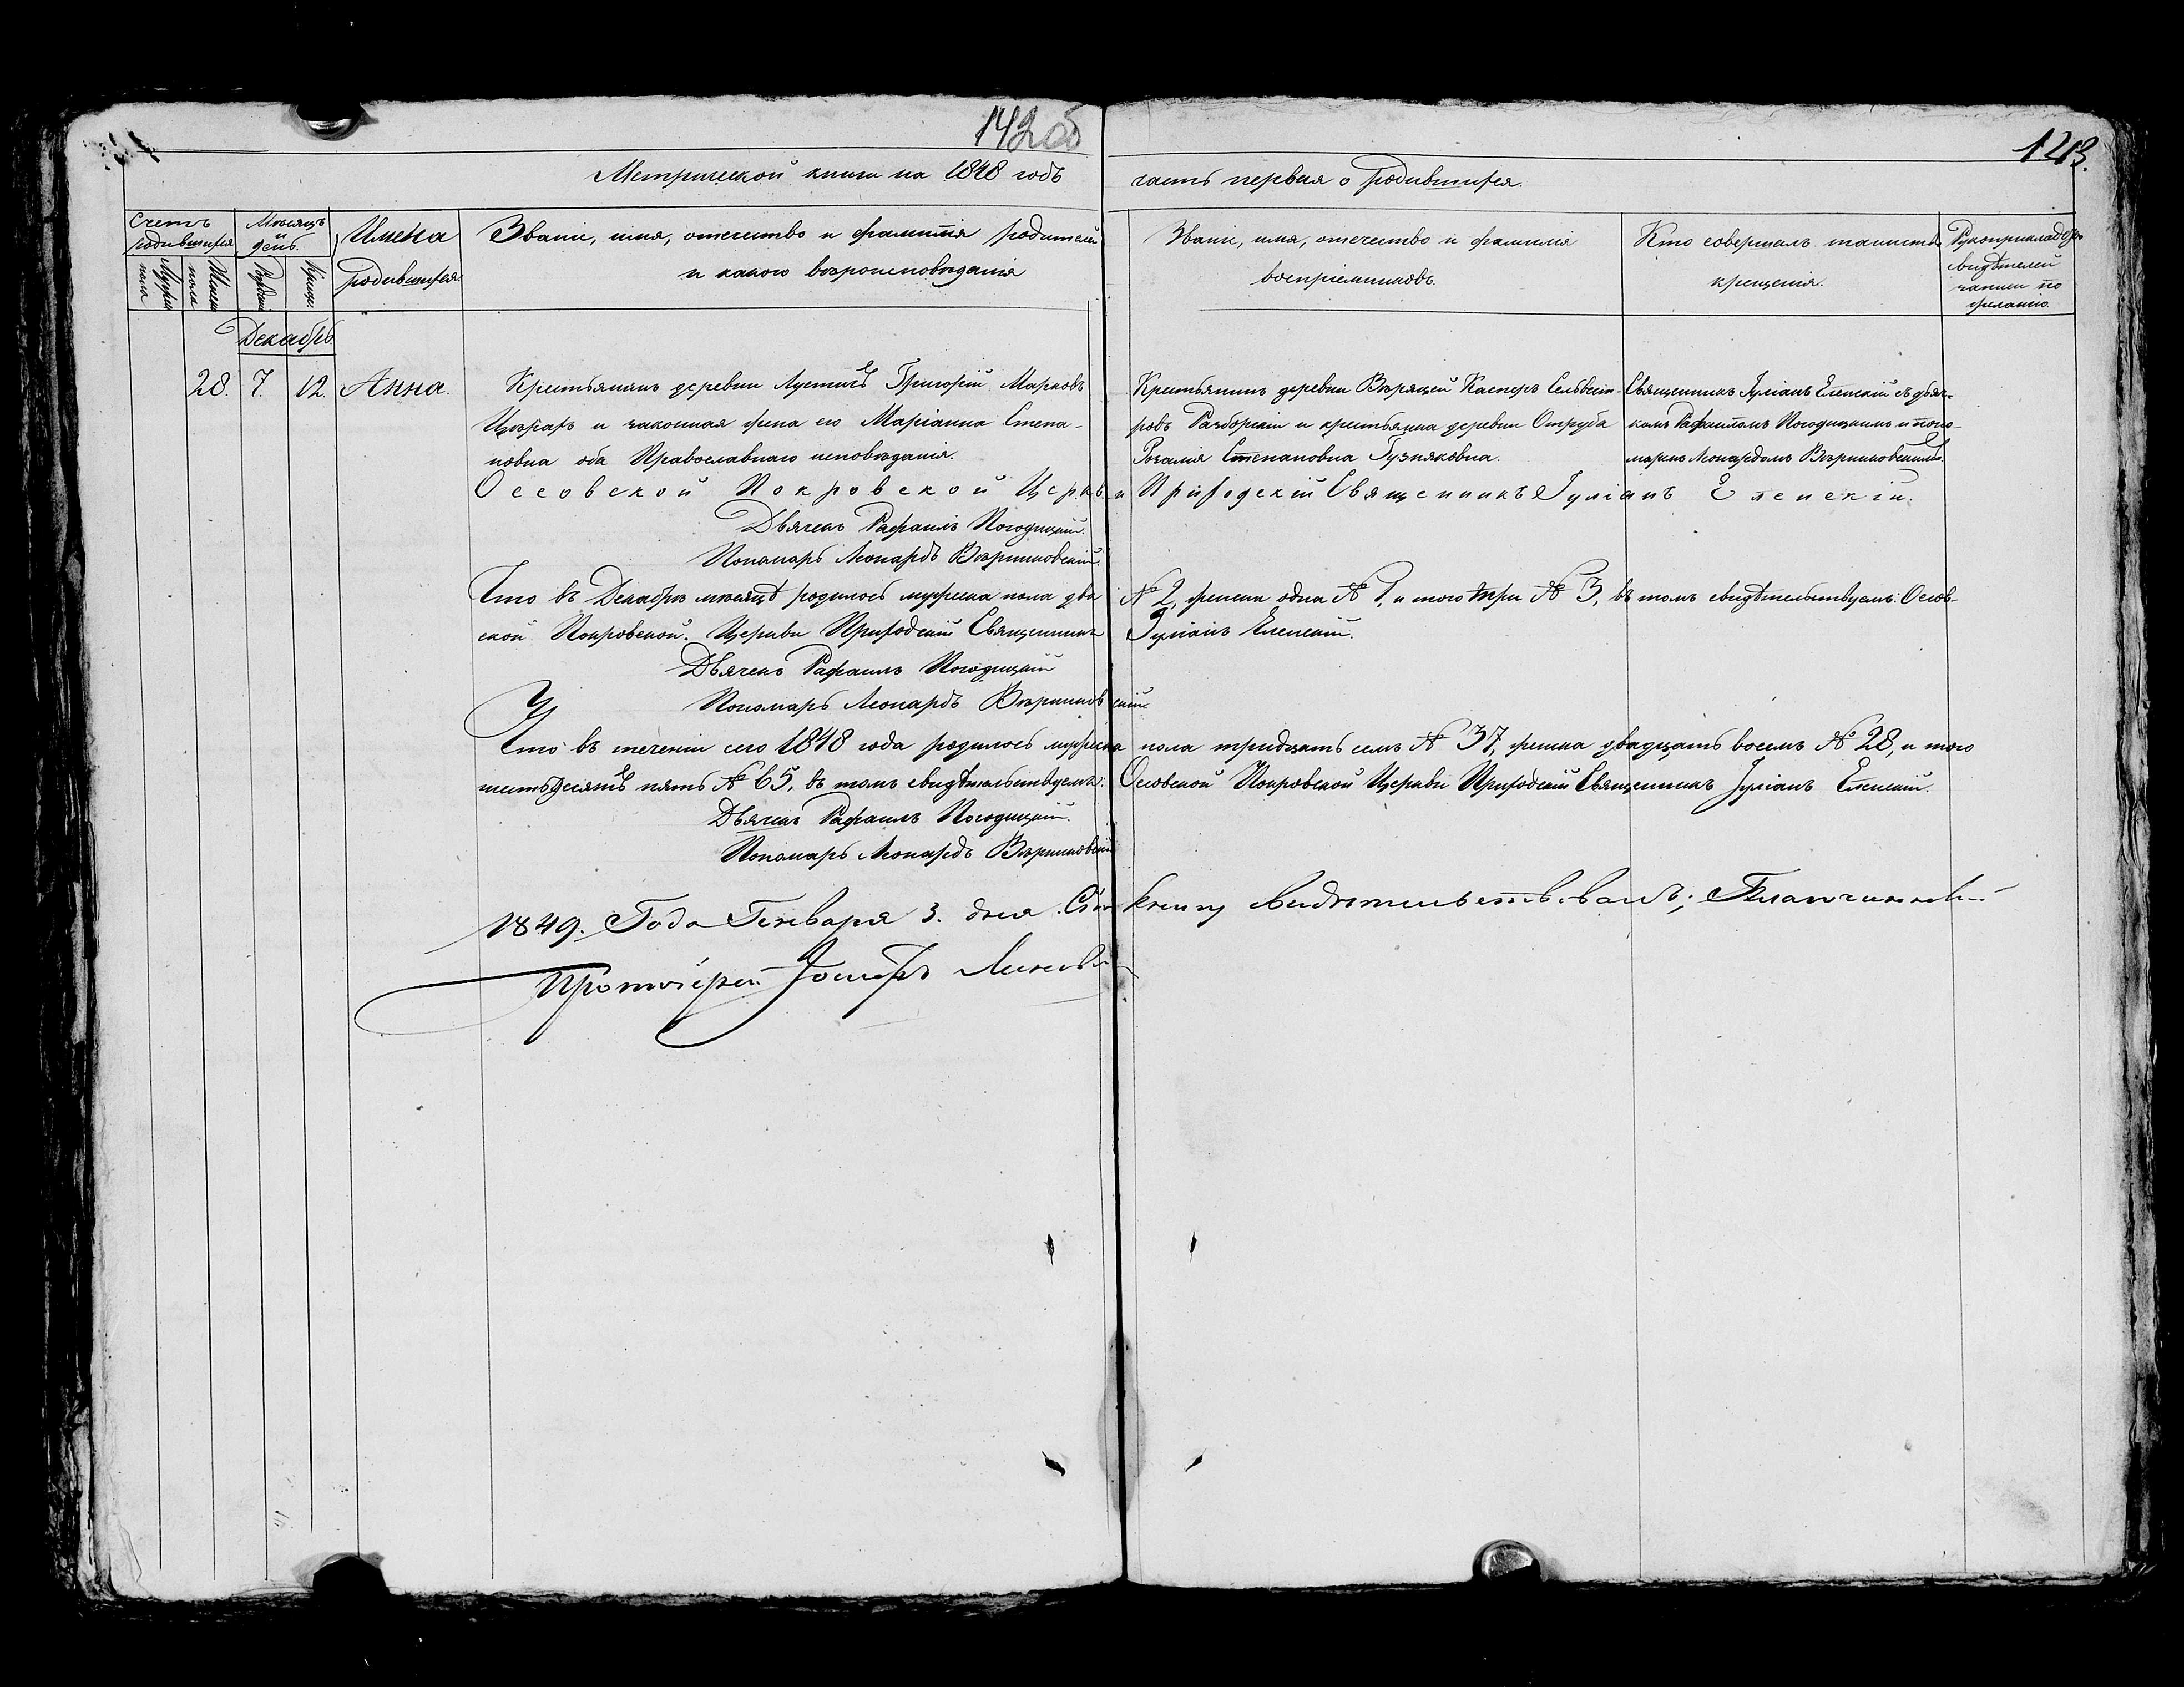 142об
143.
Метрической книги на 1848 годъ часть первая о родившихся.
Счетъ родившихся
Мѣсяцъ и день.
Имена родившихся.
Званіе, имя, отечество и фамилія родителей
и какого вѣроисповѣданія
Званіе, имя, отечество и фамилія
воспріемниковъ.
Кто совершалъ таинство
крещенія.
Рукоприкладство
свидѣтелей
записи по
желанію.
Мужеска пола
Женска пола
Рожден.
Крещ.
Декабрь
28. 7. 12. Анна.
Крестьянинъ деревни Лустичъ Григорій Марковъ
и законная жена его Маріанна Степа-
новна оба Православнаго исповѣданія.
Крестьянинъ деревни Касперъ Сельвест-
ровъ Разборскій и крестьянка деревни Отруба
Розалія Степановна Гузняковна.
Священникъ Іуліанъ Еленскій съ дьяч-
комъ Рафаиломъ Погодицкимъ и поно-
маремъ Леонардомъ Вѣрниковскимъ.
Оссовской Покровской Церкви Приходскій Священникъ Іуліанъ Еленскій.
Дьячекъ Рафаилъ Погодицкій.
Пономарь Леонардъ Вѣрниковскій.
Что въ Декабрѣ мѣсяцѣ родилось мужеска пола два № 2, женска одна № 1, и того три № 3, въ томъ свидѣтельствуемъ: Оссов-
ской Покровской Церкви Приходскій Священникъ Іуліанъ Еленскій.
Дьячекъ Рафаилъ Погодицкій
Пономарь Леонардъ Вѣрниковскій
Что въ теченіи сего 1848 года родилось мужеска пола тридцать семь № 37, женска двадцать восемь № 28, и того
шестьдесятъ пять № 65, въ томъ свидѣтельствуемъ: Оссовской Покровской Церкви Приходскій Священникъ Іуліанъ Еленскій.
Дьячекъ Рафаилъ Погодицкій.
Пономарь Леонардъ Вѣрниковскій
1849. Года Генваря 3. дня Сію книгу свидѣтельствовалъ; Благочинный
Протоіерей Іосифъ